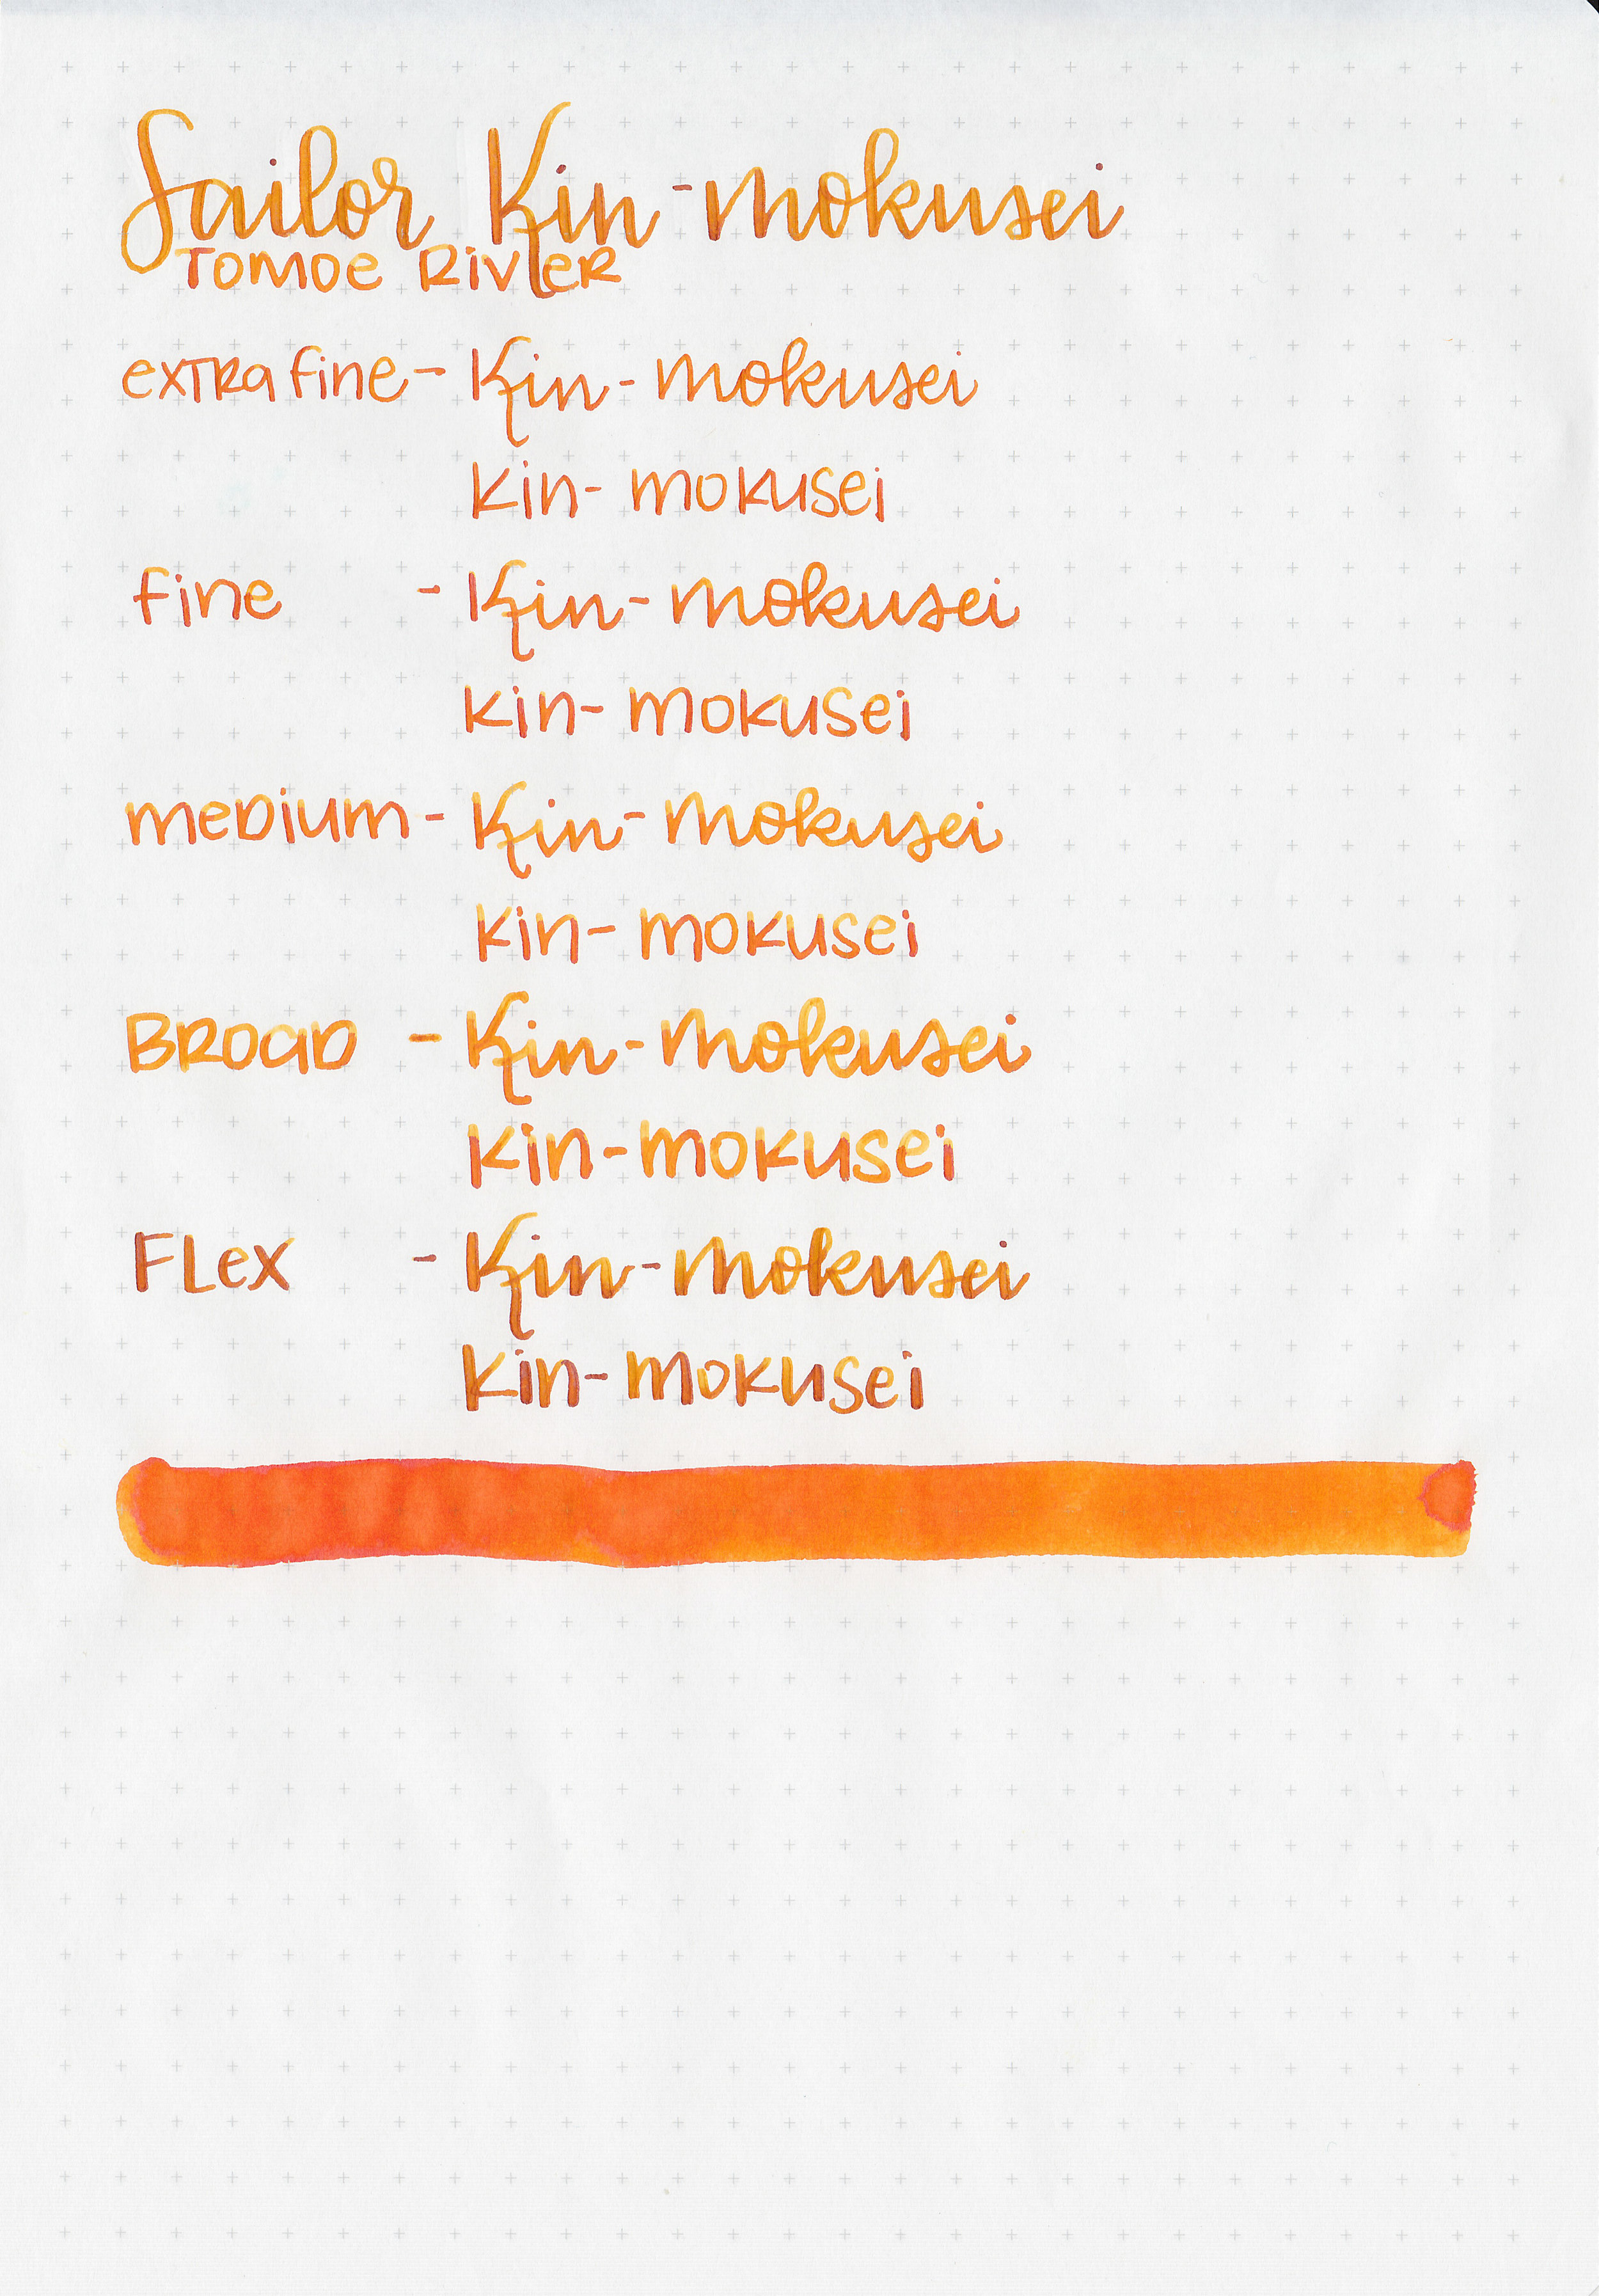 Sailor Kin-mokusei
Tomoe River
extra fine - Kin-mokusei
Kin-mokusei
fine - Kin-mokusei
Kin-mokusei
medium - Kin-mokusei
Kin-mokusei
Broad - Kin-mokusei
Kin-mokusei
Flex - Kin-mokusei
Kin-mokusei